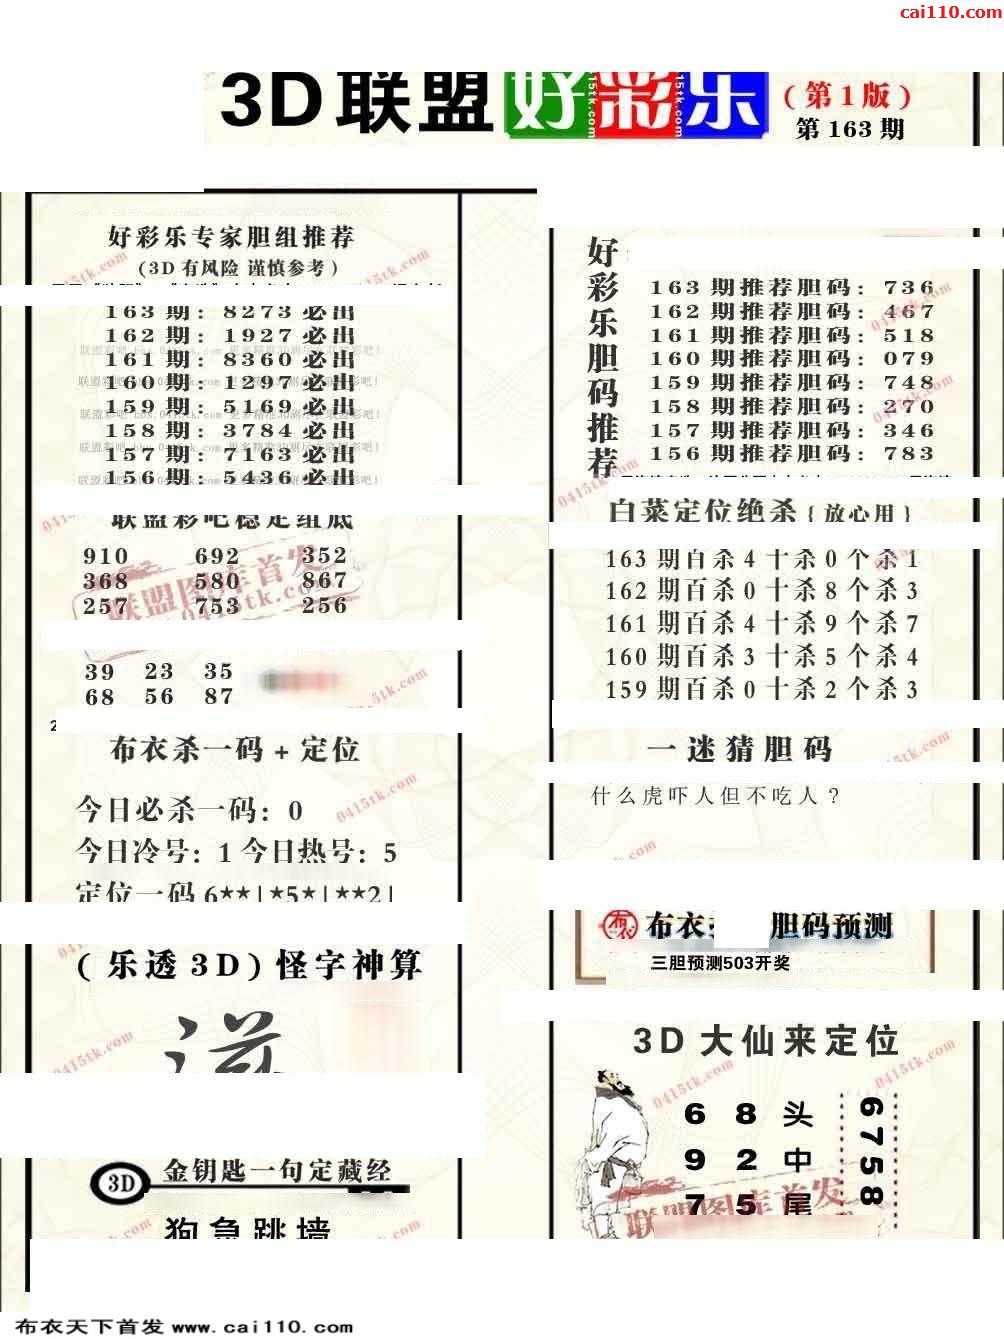 cai110.com
3D联盟好彩乐
(第1版)
第163期
好彩乐专家胆组推荐
(3D有风险 谨慎参考)
163期: 8273必出
162期: 1927必出
161期: 8360必出
160期: 1297必出
159期: 5169必出
158期: 3784必出
157期: 7163必出
156期: 5436必出
联盟彩吧稳定组底
910 692 352
368 580 867
257 753 256
39 23 35
68 56 87
布衣杀一码+定位
今日必杀一码: 0
今日冷号: 1今日热号: 5
定位一码6**|*5*|**2|
(乐透3D)怪字神算
3D
金钥匙一句定藏经
狗急跳墙
好彩乐胆码推荐
163期推荐胆码: 736
162期推荐胆码: 467
161期推荐胆码: 518
160期推荐胆码: 079
159期推荐胆码: 748
158期推荐胆码: 270
157期推荐胆码: 346
156期推荐胆码: 783
白菜定位绝杀{放心用}
163期百杀4十杀0个杀1
162期百杀0十杀8个杀3
161期百杀4十杀9个杀7
160期百杀3十杀5个杀4
159期百杀0十杀2个杀3
一迷猜胆码
什么虎吓人但不吃人?
布衣 胆码预测
三胆预测503开奖
3D大仙来定位
6 8头
9 2中
7 5尾
6758
联盟图库首发
0415tk.com
布衣天下首发 www.cai110.com